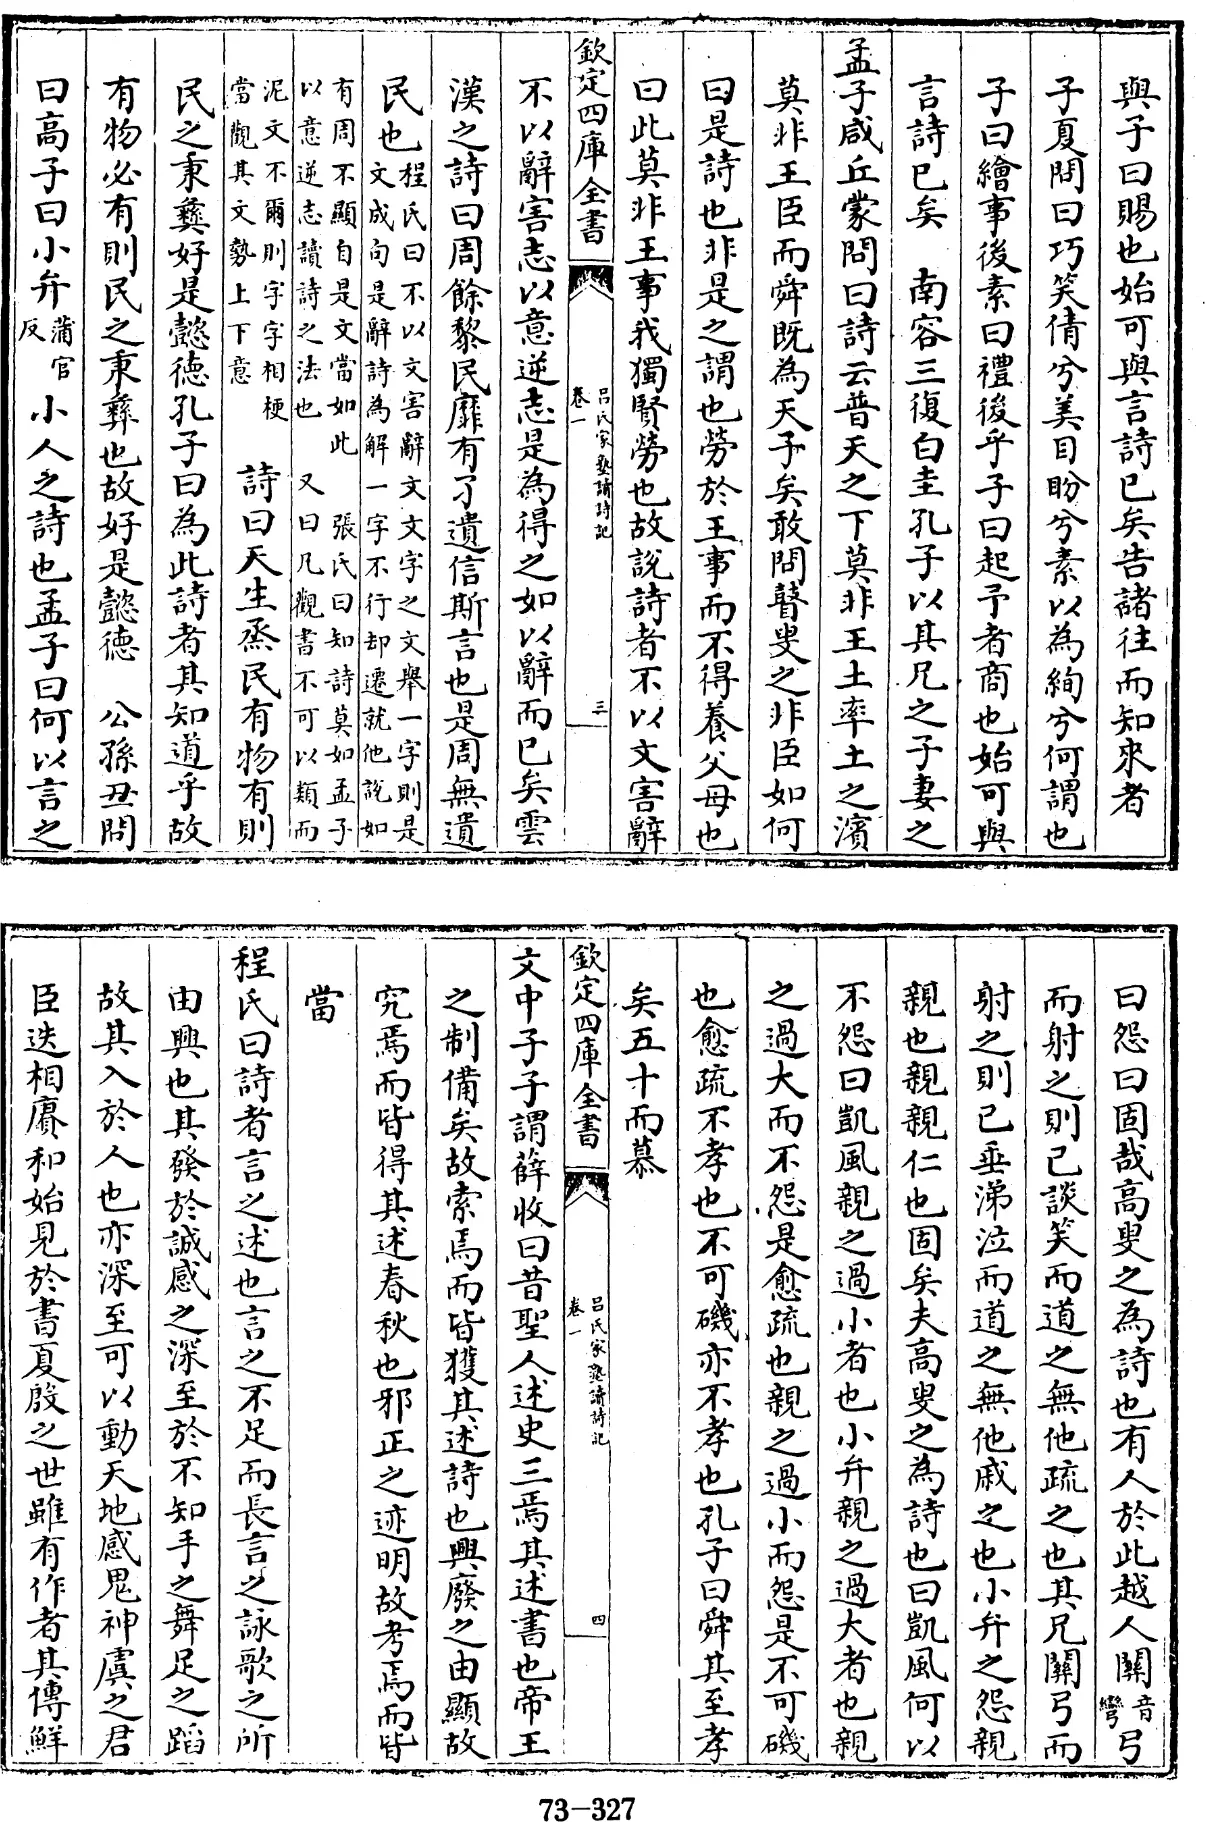 與子曰賜也始可與言詩已矣告諸往而知來者
子夏問曰巧笑倩兮美目盼兮素以為絢兮何謂也
子曰繪事後素曰禮後乎子曰起予者商也始可與
言詩已矣　南容三復白圭孔子以其兄之子妻之
孟子咸丘蒙問曰詩云普天之下莫非王土率土之濱
莫非王臣而舜既為天子矣敢問瞽叟之非臣如何
曰是詩也非是之謂也勞於王事而不得養父母也
曰此莫非王事我獨賢勞也故說詩者不以文害辭
欽定四庫全書
呂氏家塾讀詩記
卷一
三
不以辭害志以意逆志是為得之如以辭而已矣雲
漢之詩曰周餘黎民靡有孑遺信斯言也是周無遺
民也
程氏曰不以文害辭文文字之文舉一字則是
文成句是辭詩為解一字不行却遷就他說如
有周不顯自是文當如此　張氏曰知詩莫如孟子
以意逆志讀詩之法也　又曰凡觀書不可以類而
泥文不爾則字字相梗
當觀其文勢上下意
詩曰天生烝民有物有則
民之秉彝好是懿德孔子曰為此詩者其知道乎故
有物必有則民之秉彝也故好是懿德　公孫丑問
曰高子曰小弁
蒲官
反
小人之詩也孟子曰何以言之
曰怨曰固哉高叟之為詩也有人於此越人關
音
彎
弓
而射之則已談笑而道之無他疏之也其兄關弓而
射之則已垂涕泣而道之無他戚之也小弁之怨親
親也親親仁也固矣夫高叟之為詩也曰凱風何以
不怨曰凱風親之過小者也小弁親之過大者也親
之過大而不怨是愈疏也親之過小而怨是不可磯
也愈疏不孝也不可磯亦不孝也孔子曰舜其至孝
矣五十而慕
欽定四庫全書
呂氏家塾讀詩記
卷一
四
文中子子謂薛收曰昔聖人述史三焉其述書也帝王
之制備矣故索焉而皆獲其述詩也興廢之由顯故
究焉而皆得其述春秋也邪正之迹明故考焉而皆
當
程氏曰詩者言之述也言之不足而長言之詠歌之所
由興也其發於誠感之深至於不知手之舞足之蹈
故其入於人也亦深至可以動天地感鬼神虞之君
臣迭相賡和始見於書夏殷之世雖有作者其傳鮮
73-327